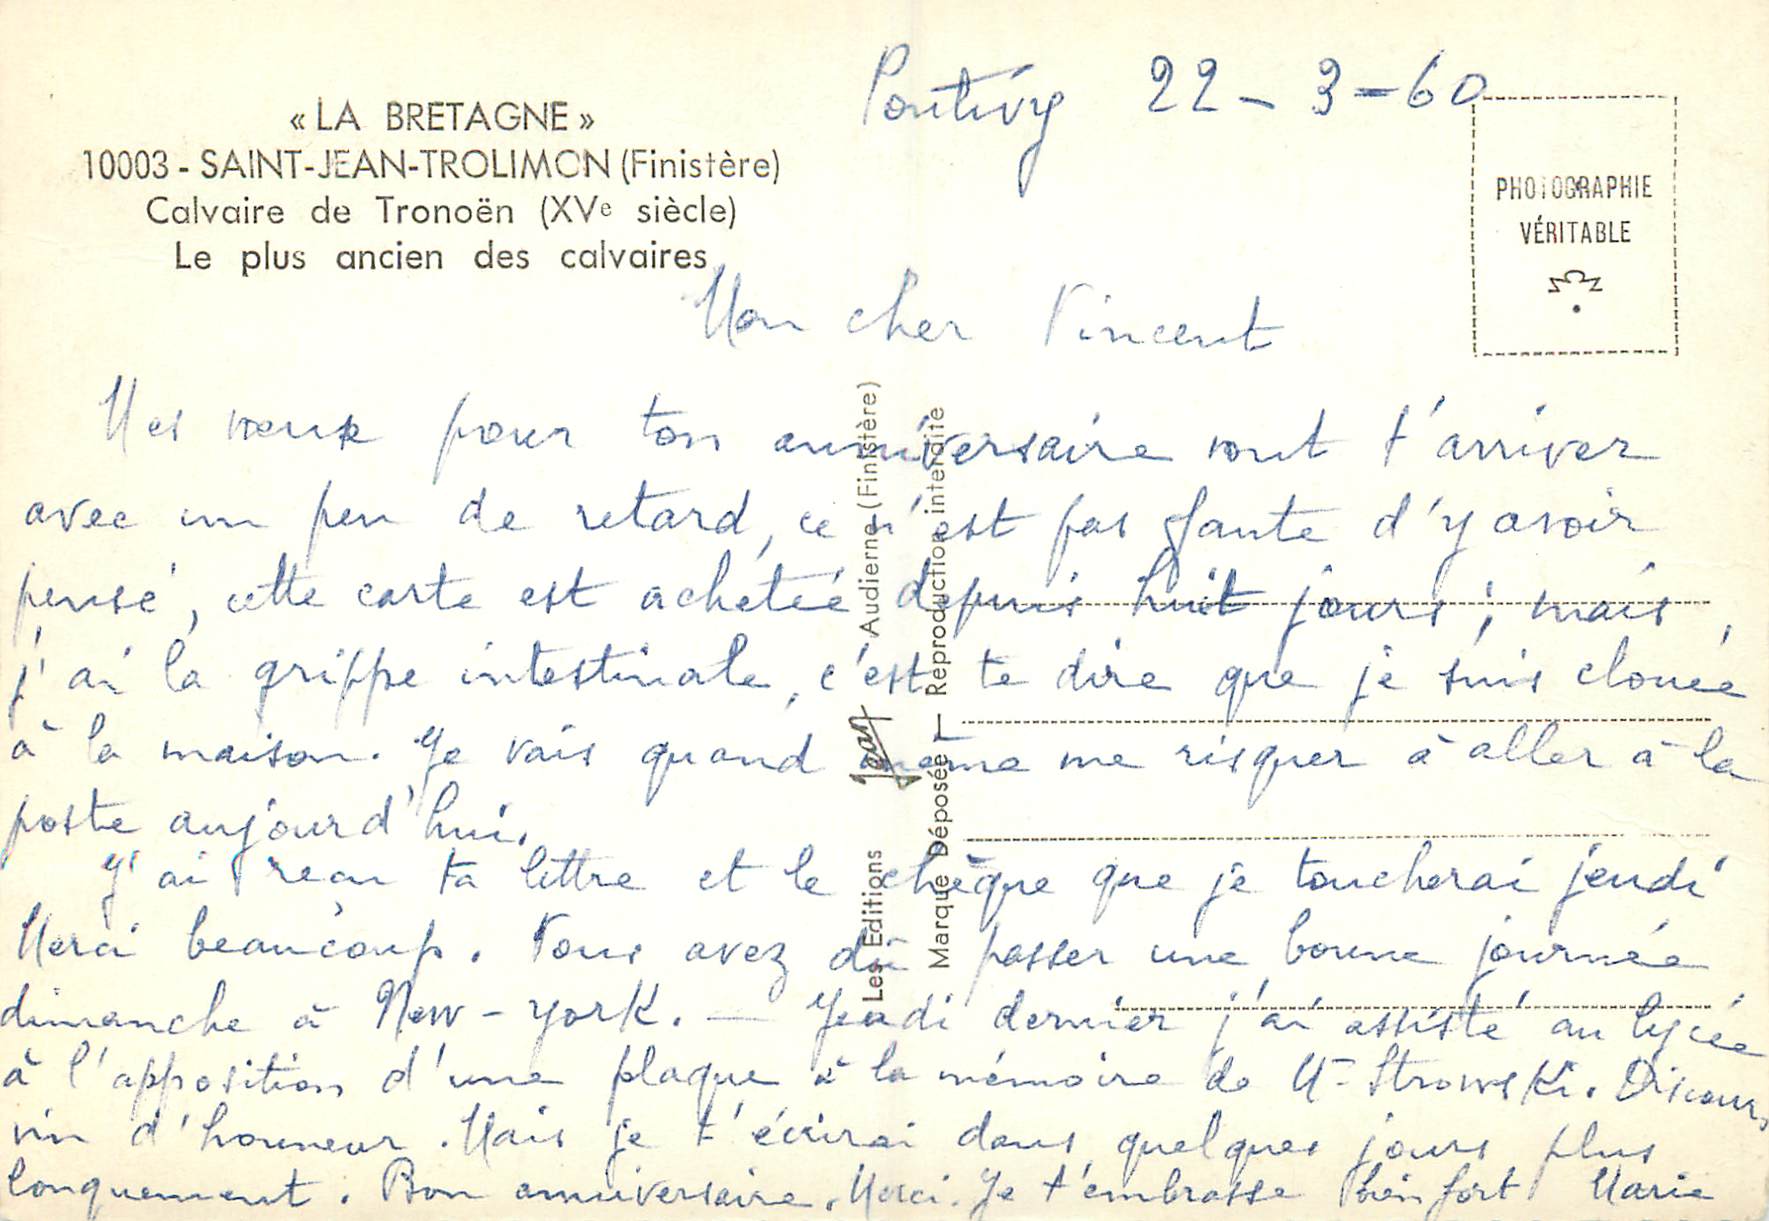 « LA BRETAGNE »
10003 - SAINT-JEAN-TROLIMON (Finistère)
Calvaire de Tronoën (XVe siècle)
Le plus ancien des calvaires
Pontivy 22 - 3 - 60
PHOTOGRAPHIE
VÉRITABLE
Mon cher Vincent
Mes vœux pour ton anniversaire vont t'arriver
avec un peu de retard, ce n'est pas faute d'y avoir
pensé, cette carte est achetée depuis huit jours ; mais,
j'ai la grippe intestinale, c'est te dire que je suis clouée
à la maison. Je vais quand même me risquer à aller à la
poste aujourd'hui.
J'ai reçu ta lettre et le chèque que je toucherai jeudi
Merci beaucoup. Vous avez dû passer une bonne journée
dimanche à New-York. — Jeudi dernier j'ai assisté au lycée
à l'apposition d'une plaque à la mémoire de Mr Strowski. Discours,
vin d'honneur. Mais je t'écrirai dans quelques jours plus
longuement. Bon anniversaire. Merci. Je t'embrasse bien fort Marie
Les Editions Jean Audierne (Finistère)
Marque Déposée — Reproduction interdite